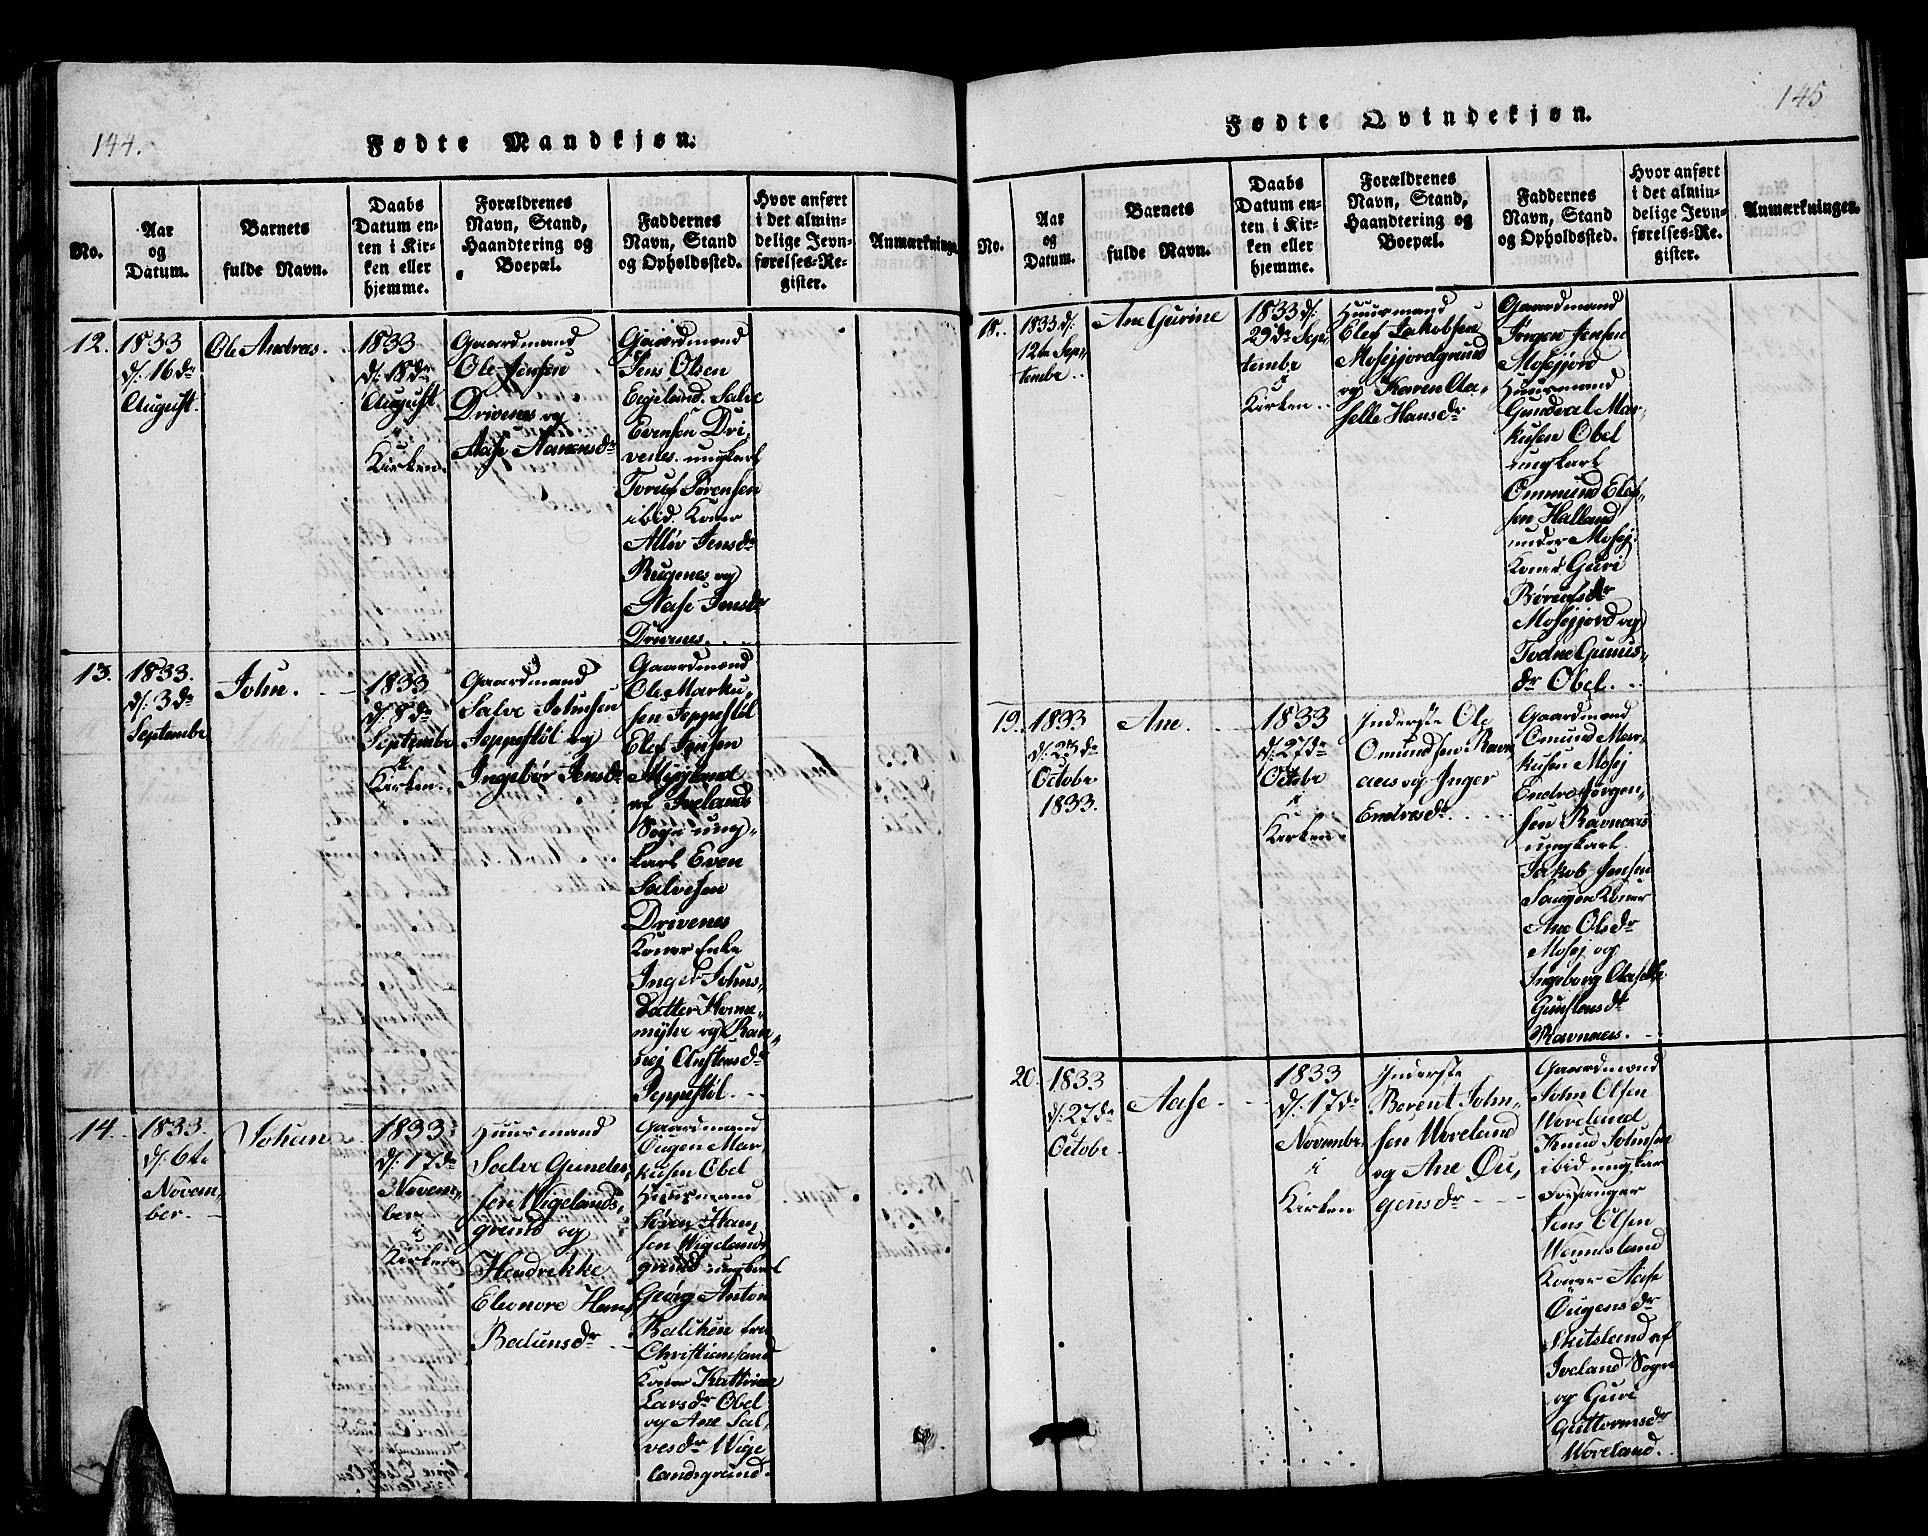 144.
Fødte Mandkjøn.
No.
Aar
og
Datum.
Barnets
fulde Navn.
Daabs
Datum en-
ten i Kir-
ken eller
hjemme.
Forældrenes
Navn, Stand,
Haandtering og
Boepæl.
Faddernes
Navn, Stand
og Opholdssted.
Hvor anført
i det almin-
delige Jevn-
førelses-Re-
gister.
Anmærkninge
12.
1833
d: 16de
August.
Ole Andreas.
1833
d: 18de
August
i
Kirken.
Gaardmand
Ole Jensen
Drivenes og
Aase Aanensdr
Gaardmand
Jens Olsen
Eigeland. Salve
Evensen Dri-
venes. ungkarl
Toruf Sørensen
ibid. Koner
Allov Jensdr
Rugenes og
Aase Jensdr
Drivenes.
13.
1833.
d: 3de
Septembe
John.
1833
d: 8de
Septembe
i
Kirken.
Gaardmand
Salve Johnsen
Jeppestøl og
Ingebør Jensdr
Gaardmand
Ole Marku,,
sen Jeppestøl
Elef Jensen
af Ivelands
Sogn ung,,
karl Even
Salvesen
Drivenes
Koner Enke
Inger Johns,,
datter Home,,
myhr og Ran,,
nej Austensdr
Jeppestøl.
14.
1833.
d: 6te
Novem,,
ber.
Johan
1833
d: 17de
Novem,,
ber
i
Kirken
Huusmand
Salve Gunder,,
sen Wigelands,,
grund og
Hendrikke
Eleonore Hans
Gaardmand
Øugen Mar
kusen Obel
Huusmand
Søren Han,,
sen Wigelands
grund ungkarl
Georg Anton
Balchen fra
Christiansand
Koner Kattrine
Larsdr Obel
og Ane Sal,,
vesdr Wige
landsgrund.
145
Fødte Qvindekjøn.
No.
Aar
og
Datum.
Barnets
fulde Navn.
Daabs
Datum en-
ten i Kir-
ken eller
hjemme.
Forældrenes
Navn, Stand,
Haandtering og
Boepæl.
Faddernes
Navn, Stand
og Opholdssted.
Hvor anført
i det almin-
delige Jevn-
førelses-Re-
gister.
Anmærkninger.
18.
1833 d:
12te Sep,,
tembe.
Ane Gurine
1833 d:
29de Sep,,
tembe
i
Kirken.
Huusmand
Elef Jakobsen
Mosejjordgrund
og Karen Ola,,
selle Hansdr
Gaardmand
Jørgen Jensen
Mosejjord
Huusmand
Gundval Mar,,
kusen Obel
ungkarl
Ommund Elef,,
sen Halland
under Mosej.
Koner Guri
Børensdr
Mosejjord og
Todne Gunus,,
dr Obel.
19.
1833
d: 23de
Octobe
1833.
Ane.
1833
d: 27de
Octobe
i
Kirken.
Inderste Ole
Omundsen Ravn
aas og Inger
Endresdr.
Gaardmand
Omund Mar,,
kusen Mosej
Endre Jørgen,,
sen Ravnaas
ungkarl.
Jakob Jensen
Saugen Koner
Ane Olsdr
Mosej og
Ingeborg Olaselle
Gunstensdr
Ravnaas.
20.
1833
d: 27de
Octobe
Aase.
1833
d: 17de
Novembe
i
Kirken
Inderste
Berent John,,
sen Woreland
og Ane Øu,,
gensdr
Gaardmand
John Olsen
Woreland
Knud Johnsen
ibid ungkar
Forsanger
Jens Olsen
Wennesland
Koner Aase
Øugensdr
Skitsland af
Iveland Sogn
og Guri
Guttormsdr
Woreland.